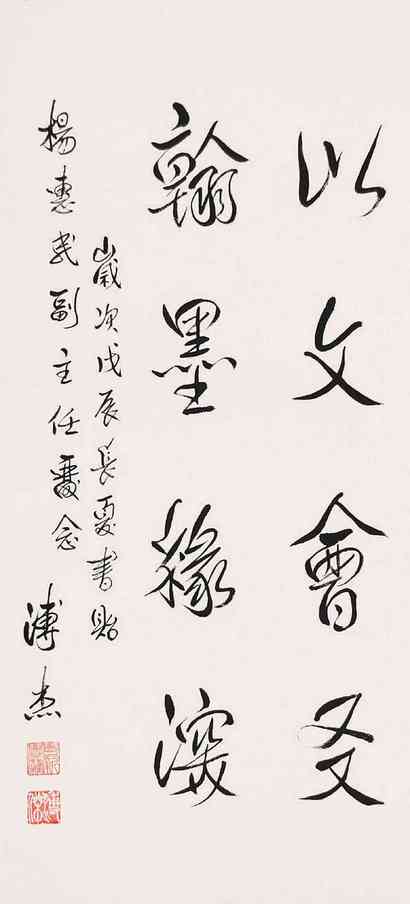 以文會友
翰墨緣深
歲次戊辰長夏書貽
楊惠民副主任靈念
溥杰